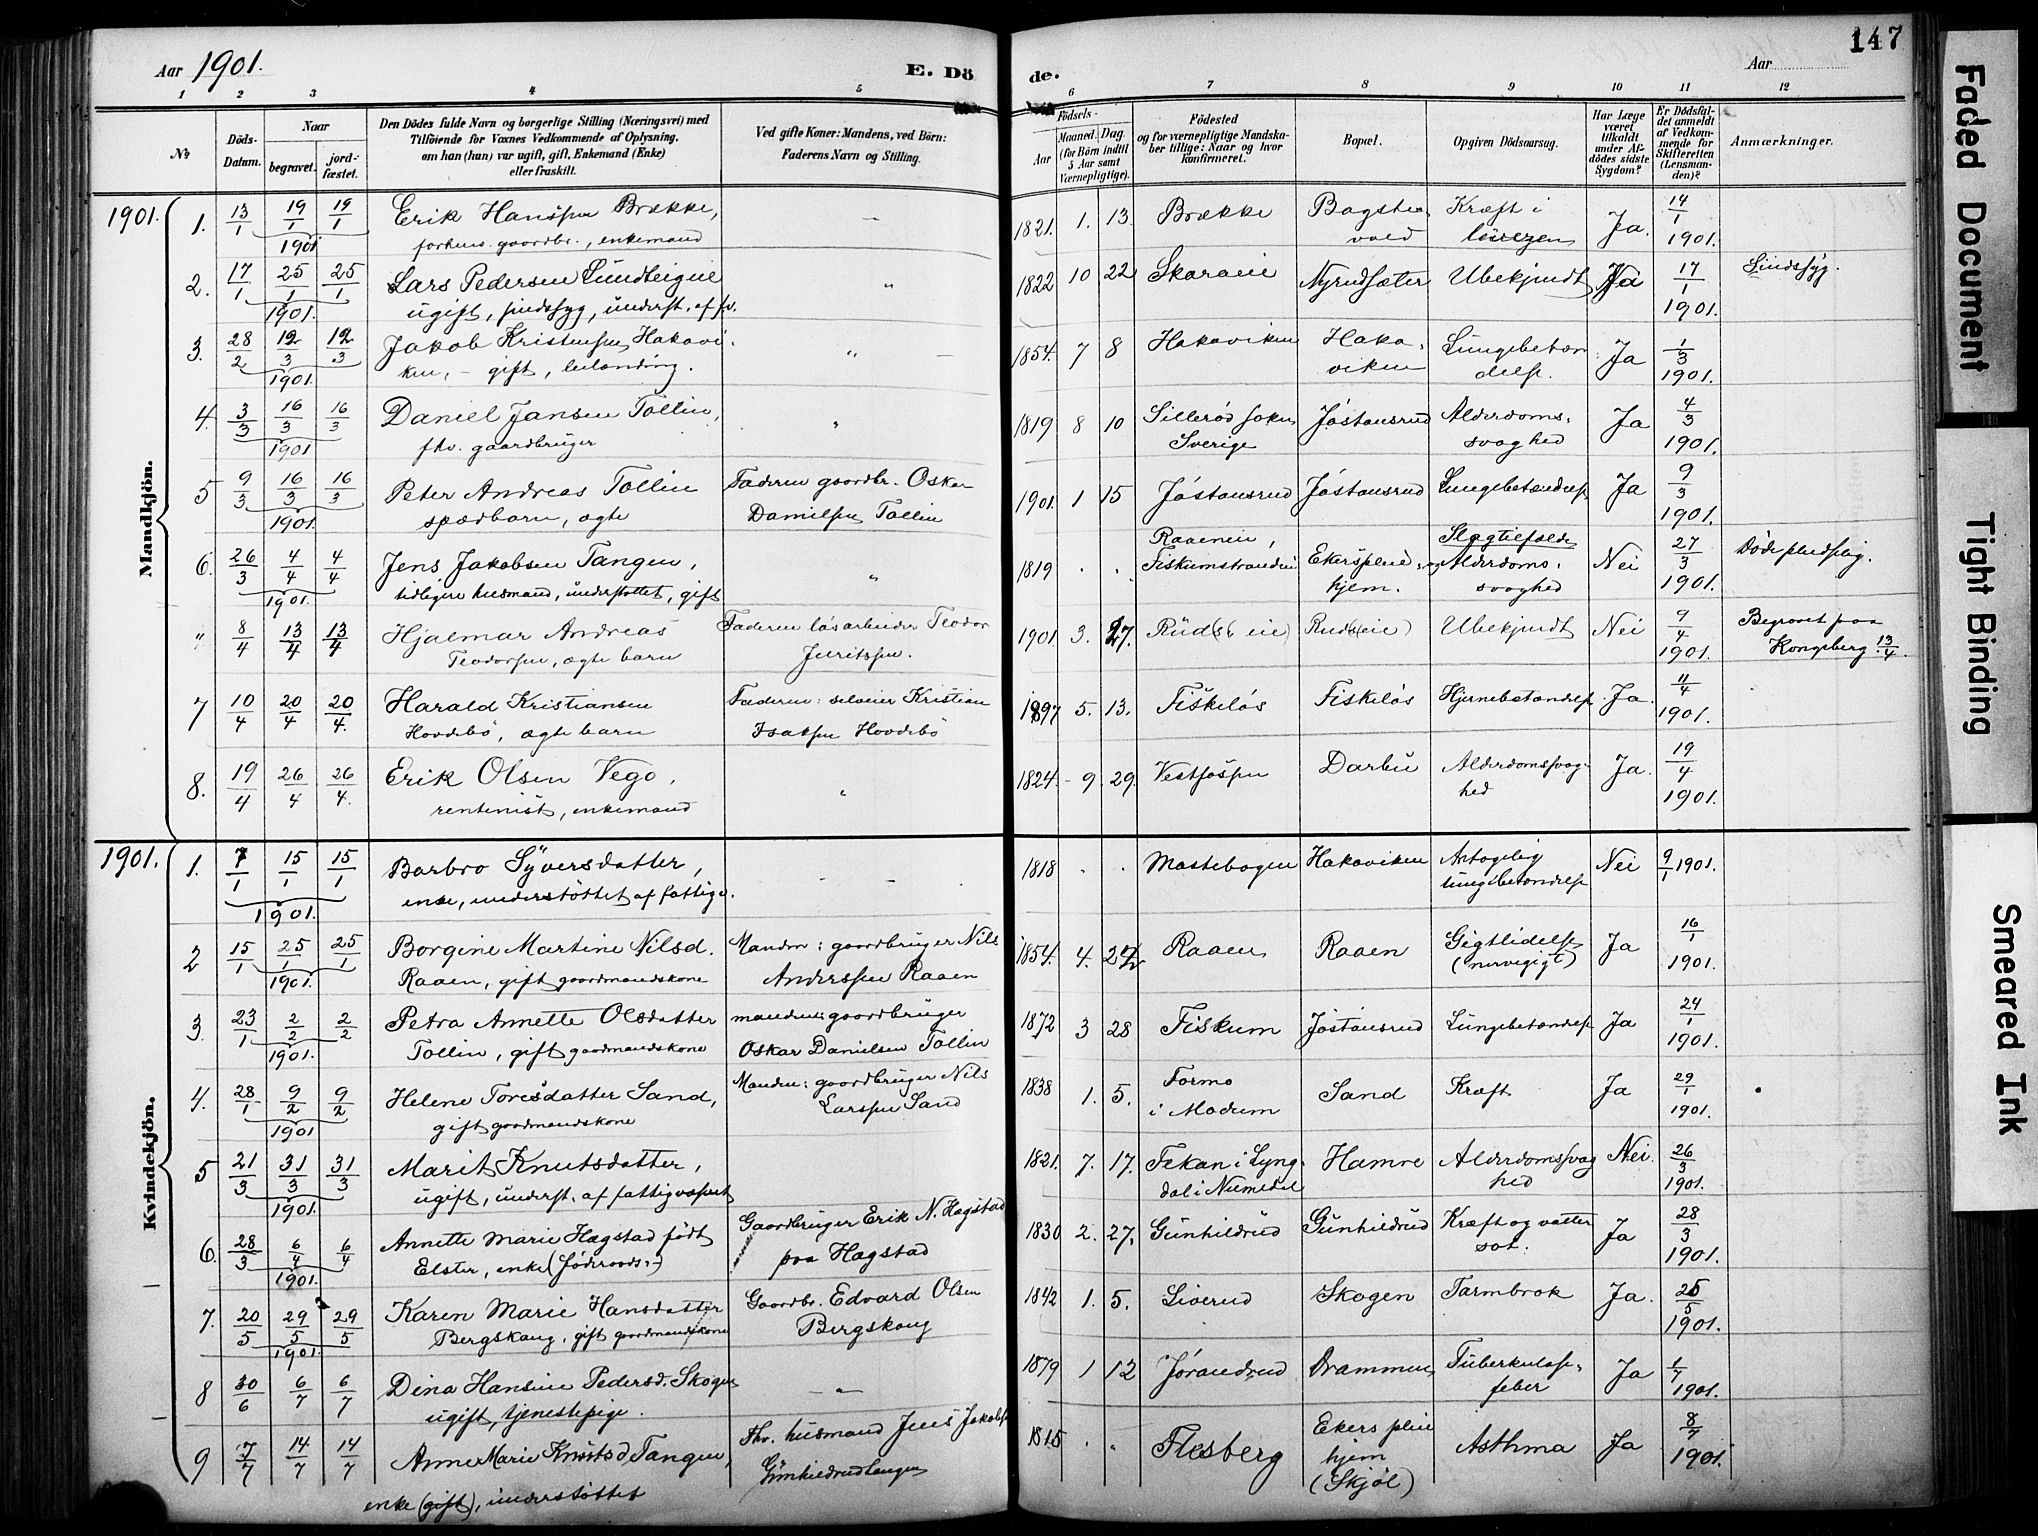 Aar 1901.
E. Dö de.
Aar
147
1 2 3 4 5 6 7 8 9 10 11 12
№
Döds-Datum.
Naar
begravet.
jord-fæstet.
Den Dödes fulde Navn og borgerlige Stilling (Næringsvei) med
Tilföiende for Voxnes Vedkommende af Oplysning,
om han (hun) var ugift, gift, Enkemand (Enke)
eller fraskilt.
Ved gifte Koner: Mandens, ved Börn:
Faderens Navn og Stilling.
Födsels-
Aar
Maaned. Dag
(for Börn indtil
5 Aar samt
Værnepligtige).
Födested
og for værnepligtige Mandska-
ber tillige: Naar og hvor
konfirmeret.
Bopæl.
Opgiven Dödsaarsag.
Har Læge
været
tilkaldt
under Af-
dödes sidste
Sygdom?
Er Dödsfal-
det anmeldt
af Vedkom-
mende for
Skifteretten
(Lensman-
den)?
Anmærkninger.
Mandkjön.
1901. 1. 13/1 19/1 19/1 Erik Hanssen Brække, — 1821. 1. 13. Brække Bagste Kræft i Ja. 14/1
1901 forhens. gaardbr., enkemand vold 1901.
2. 17/1 25/1 25/1 Lars Pedersen Lundteigeie " 1822 10 22 Skaraeie Nyrudsæter Ubekjendt Nei 17/1 Sindssyg.
1901. ugift, sindssyg, underst. af fv. 1901.
3. 28/2 12/3 12/3 Jakob Kristensen Hakavi- " 1854. 7 8 Hakaviken Haka- Lungebetæn- Ja 1/3
1901. ken, – gift, leilænding. viken delse. 1901.
4. 3/3 16/3 16/3 Daniel Jansen Tollin, " 1819 8 10 Sillerød sokn Jóstansrud Alderdoms- Ja 4/3
1901 fhv. gaardbruger Sverige svaghed 1901.
5 9/3 16/3 16/3 Peter Andreas Tollin Faderen gaardbr. Oskar 1901. 1 15 Jóstansrud Jóstansrud Lungebetændelse Ja 9/3
1901. spædbarn, ægte Danielsen Tollin 1901.
6. 26/3 4/4 4/4 Jens Jakobsen Tangen, " 1819 . . Raaeneie, Fiskumstrandeie Ekerspleie- hjem. Slagtilfælde Alderdoms- svaghed Nei 27/3 Døde pludselig.
1901. tidligere husmand, understøttet, gift 1901.
" 8/4 13/4 13/4 Hjalmar Andreas Faderen løsarbeider Teodor 1901. 3. 27. Rud(s eie) Rud(seie) Ubekjendt Nei 9/4 Begravet paa
Teodorsen, ægte barn Juritssen. 1901. Kongsberg 13/4.
7 10/4 20/4 20/4 Harald Kristiansen Faderen: selveier Kristian 1897 5. 13. Fiskeløs Fiskeløs Hjernebetændelse Ja. 11/4
Hovdebö, ægte barn Isaksen Hovdebö 1901.
8. 19/4 26/4 26/4. Erik Olsen Vego, " 1824. 9. 29. Vestfossen Darbu Alderdomssvag- Ja. 19/4
rentenist, enkemand hed 1901.
Kvindekjön.
1901. 1. 7/1 15/1 15/1 Barbro Syversdatter, – – 1818 . . Mastebogen Hakaviken Antagelig Nei 9/1 1901.
1901. enke, understöttet af fattigv. lungebetændelse
2 15/1 25/1 25/1 Borgine Martine Nilsd. Manden: gaardbruger Nils 1854. 4. 24 Raaen Raaen Gigtlidelse Ja 16/1
1901. Raaen, gift gaardmandskone Anderssen Raaen (nervegigt) 1901.
3. 23/1 2/2 2/2 Petra Annette Olsdatter manden: gaardbruger 1872 3 28 Fiskum Jóstansrud Lungebetændelse Ja 24/1
1901. Tollin, gift gaardmandskone Oskar Danielsen Tollin 1901.
4. 28/1 9/2 9/2 Helene Toresdatter Sand, Manden: gaardbruger Nils 1838 1. 5. Formo Sand Kræft Ja 29/1
1901 gift gaardmandskone Larssen Sand i Modum 1901.
5 21/3 31/3 31/3 Marit Knutsdatter, 1821. 7. 17. Fekan i Lyng- Hamre Alderdomssvag Nei. 26/3
1901. ugift, underst. af fattigvæsenet dal i Numedal hed 1901.
6. 28/3 6/4 6/4 Annette Marie Hagstad født Gaardbruger Erik N. Hagstad 1830 2. 27. Gunhildrud Gunhildrud Kræft og vatter Ja 28/3
1901. Elster, enke (Føderaads-) paa Hagstad sot. 1901.
7. 20/5 29/5 29/5 Karen Marie Hansdatter Gaardbr. Edvard Olsen 1842 1. 5. Liverud Skogen Tarmbrok Ja. 25/5
1901. Bergskaug, gift gaardmandskone Bergskaug 1901.
8 30/6 6/7 6/7 Dina Hansine Pedersd. Skogen – " – 1879 1 12 Jørandrud Drammen Tuberkuløs- Ja 1/7
ugift, tjenestepige. feber 1901.
9 7/7 14/7 14/7 Anne Marie Knutsd Tangen, Fhv. husmand Jens Jakobsen 1815 . " Flesberg Ekers pleie Asthma Ja 8/7
enke (gift), understöttet Gunhildrudtangen hjem (Skjøl) 1901.
Faded Document
Tight Binding
Smeared Ink